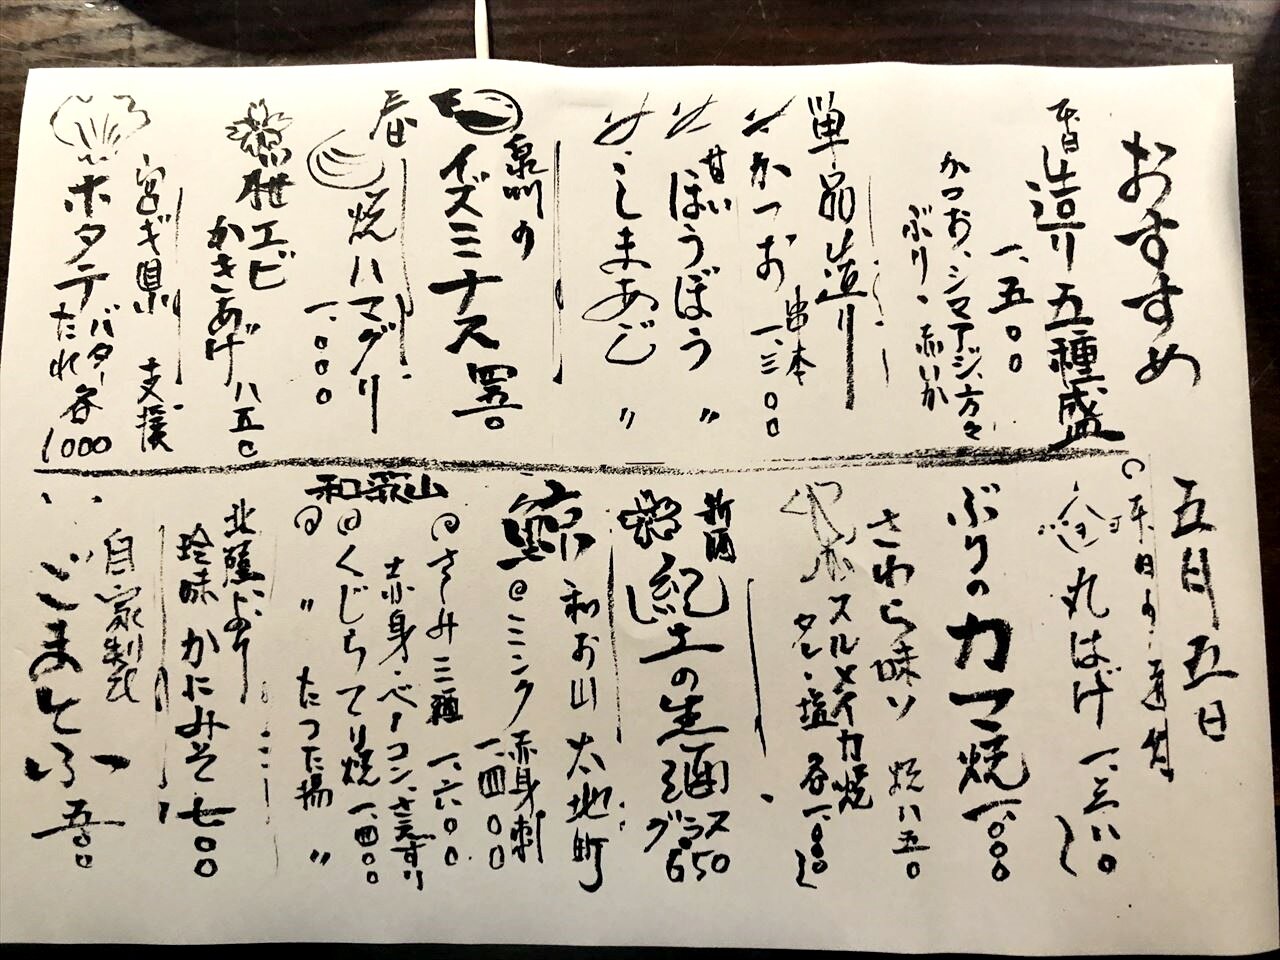 おすすめ
五月五日
本日
造り五種盛
一、五〇〇
かつお、シマアジ、方々
ぶり、赤いか
単品造り
〆かつお 串本 一、三〇〇
〆甘いほうぼう 〃
〆しまあじ 〃
泉州の
イズミナス 四五〇
春
焼ハマグリ
一、〇〇〇
桜エビ
かきあげ 八五〇
宮ギ県 支援
ホタテ バター たれ 各
1000
丸はげ 一、三八〇
ぶりのカマ焼 一、〇〇〇
さわら味ソ焼 八五〇
スルメイカ焼
タレ・塩 各一、〇〇〇
新酒
紀土の生酒
グラス 650
鯨 和お山 太地町
@ミンク赤身刺
一、四〇〇
和歌山
@さしみ三種 一、六〇〇
赤身・ベーコン、さえずり
@くじらてり焼 一、四〇〇
@ 〃 たつた揚 〃
北陸より
珍味 かにみそ 七〇〇
自家製
ごまとふ 五五〇